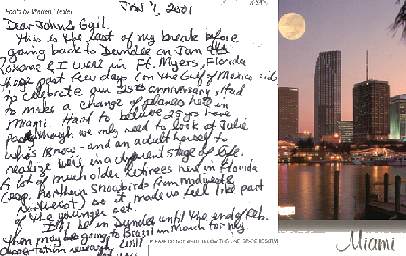 Jan 7, 2001
Dear John & Gail,
This is the last of my break before
going back to Dundee on Jan
& I were in Ft. Myers, Florida
these past few days (on the Gulf of Mexico side
to celebrate our 25th anniversary. Had
to make a change of planes here in
Miami. Hard to believe 25 yrs have
although we only need to look at Julie
who's 18 now - and an adult herself to
realize we're in a different stage of life.
A lot of much older retirees here in Florida
(esp. Northern Snowbirds from midwest &
Northeast) so it made us feel like part
of the younger set.
I'll be in Dundee until the end of Feb.
then may be going to Brazil in March for my
dissertation research. Will
Miami